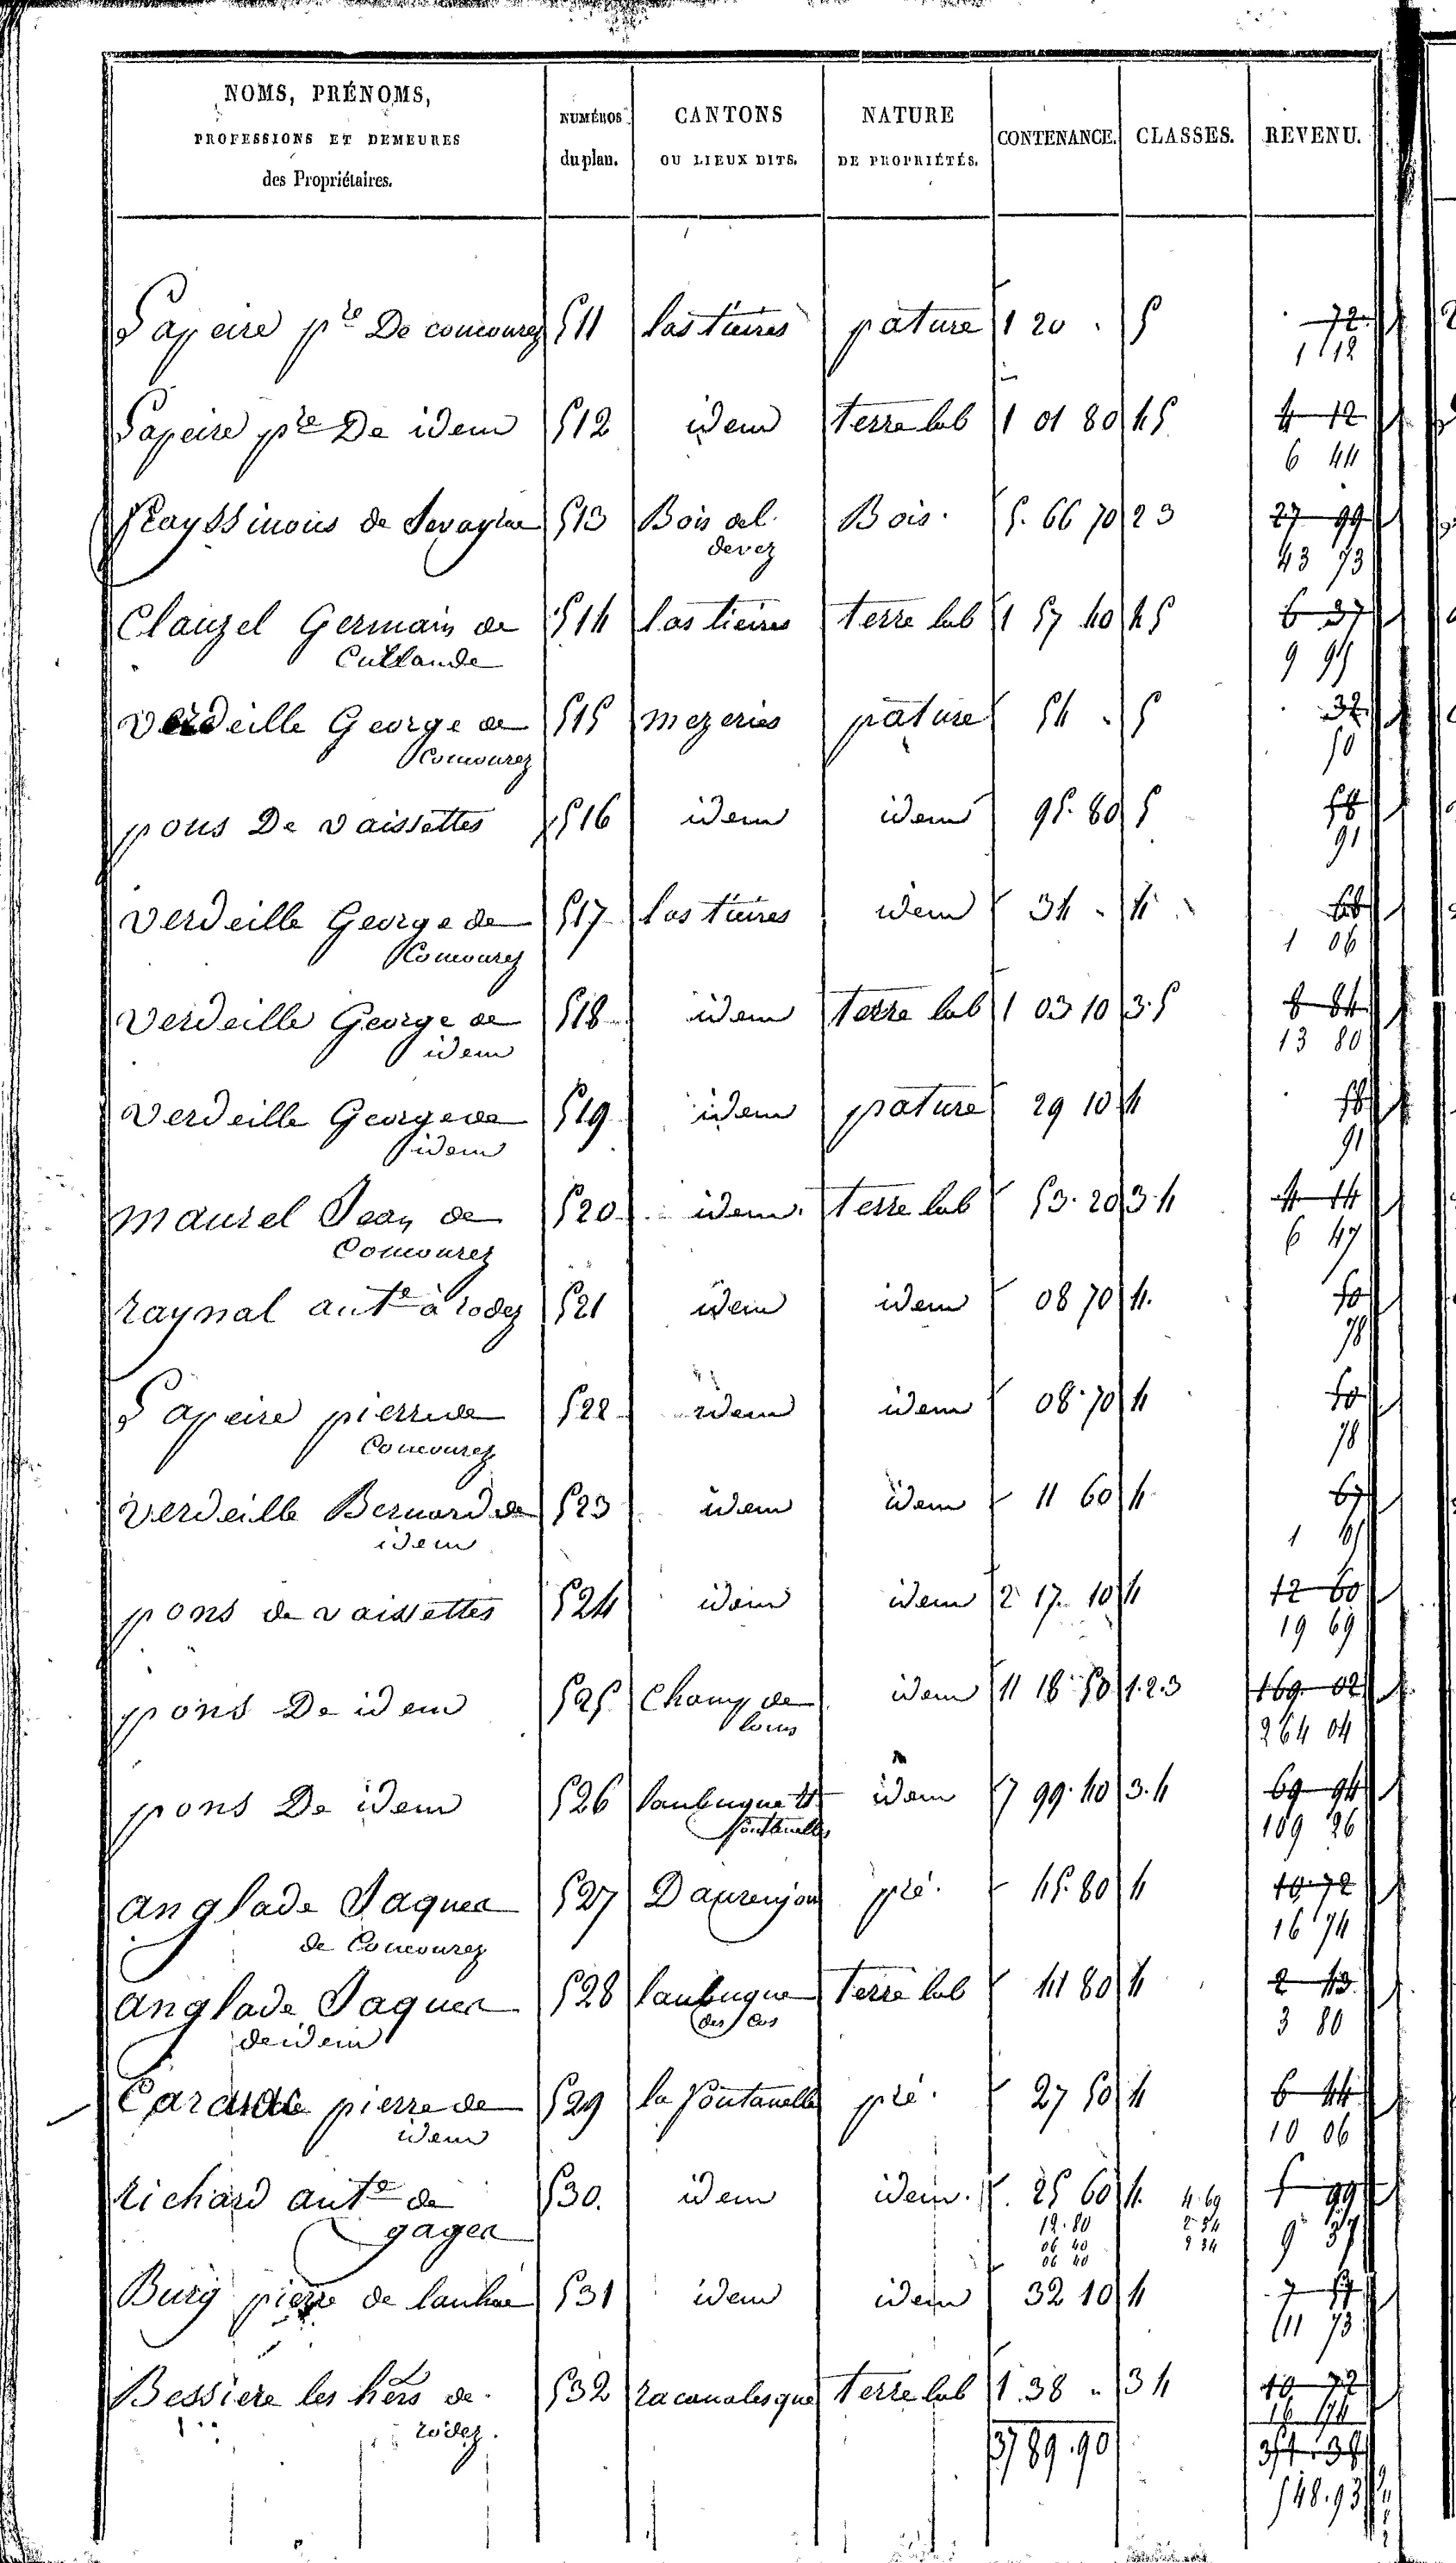 NOMS, PRÉNOMS, PROFESSIONS ET DEMEURES des Propriétaires. NUMÉROS du plan. CANTONS OU LIEUX DITS. NATURE DE PROPRIÉTÉS. CONTENANCE. CLASSES. REVENU.
Lapeire pre De concourez 511 las tieires pature 1 20 . 5 . 72
1 12
Lapeire pre De idem 512 idem terre lab 1 01 80 4 5 4 12
6 44
frayssinous de 513 Bois del Bois. 5. 66 70 2 3 27 99
devez 43 73
Clauzel Germain de 514 las tieires terre lab 1 57 40 4 5 6 37
9 95
verdeille George de 515 mezeries pature 54 . 5 . 32
Concourez 50
pons De vaissettes 516 idem idem 95. 80 5 58
91
verdeille George de 517 las tieires idem 34 . 4 68
Concourez 1 06
verdeille George de 518 idem terre lab 1 03 10 3.5 8 84
idem 13 80
verdeille George de 519 idem pature 29 10 4 58
idem 91
maurel Jean de 520 idem. terre lab 53. 20 3 4 4 14
Concourez 6 47
raynal ante à rodez 521 idem idem 08 70 4. 50
78
Lapeire pierre de 522 idem idem 08. 70 4 50
Concourez 78
verdeille Bernard de 523 idem idem 11 60 4 67
idem 1 05
pons de vaissettes 524 idem idem 2 17. 10 4 12 60
19 69
pons De idem 525 Champ de idem 11 18 50 1.2.3 169. 02
264 04
pons De idem 526 idem 7 99. 40 3. 4 69 94
109 26
anglade Jaques 527 pré. 45. 80 4 10. 72
de Concourez 16 74
anglade Jaques 528 terre lab 41 80 4 2 43
de idem 3 80
pierre de 529 la fontanelle pré. 27 50 4 6 44
idem 10 06
richard ante de 530. idem idem. 25 60 4. 4. 69 5 99
gages 12. 80 2 34 9 37
06 40 2 34
06 40
Burg pierre de 531 idem idem 32 10 4 7 51
11 73
Bessiere les hers de 532 racanalesque terre lab 1. 38 .. 3 4 10 72
rodez. 16 74
37 89. 90
548. 93